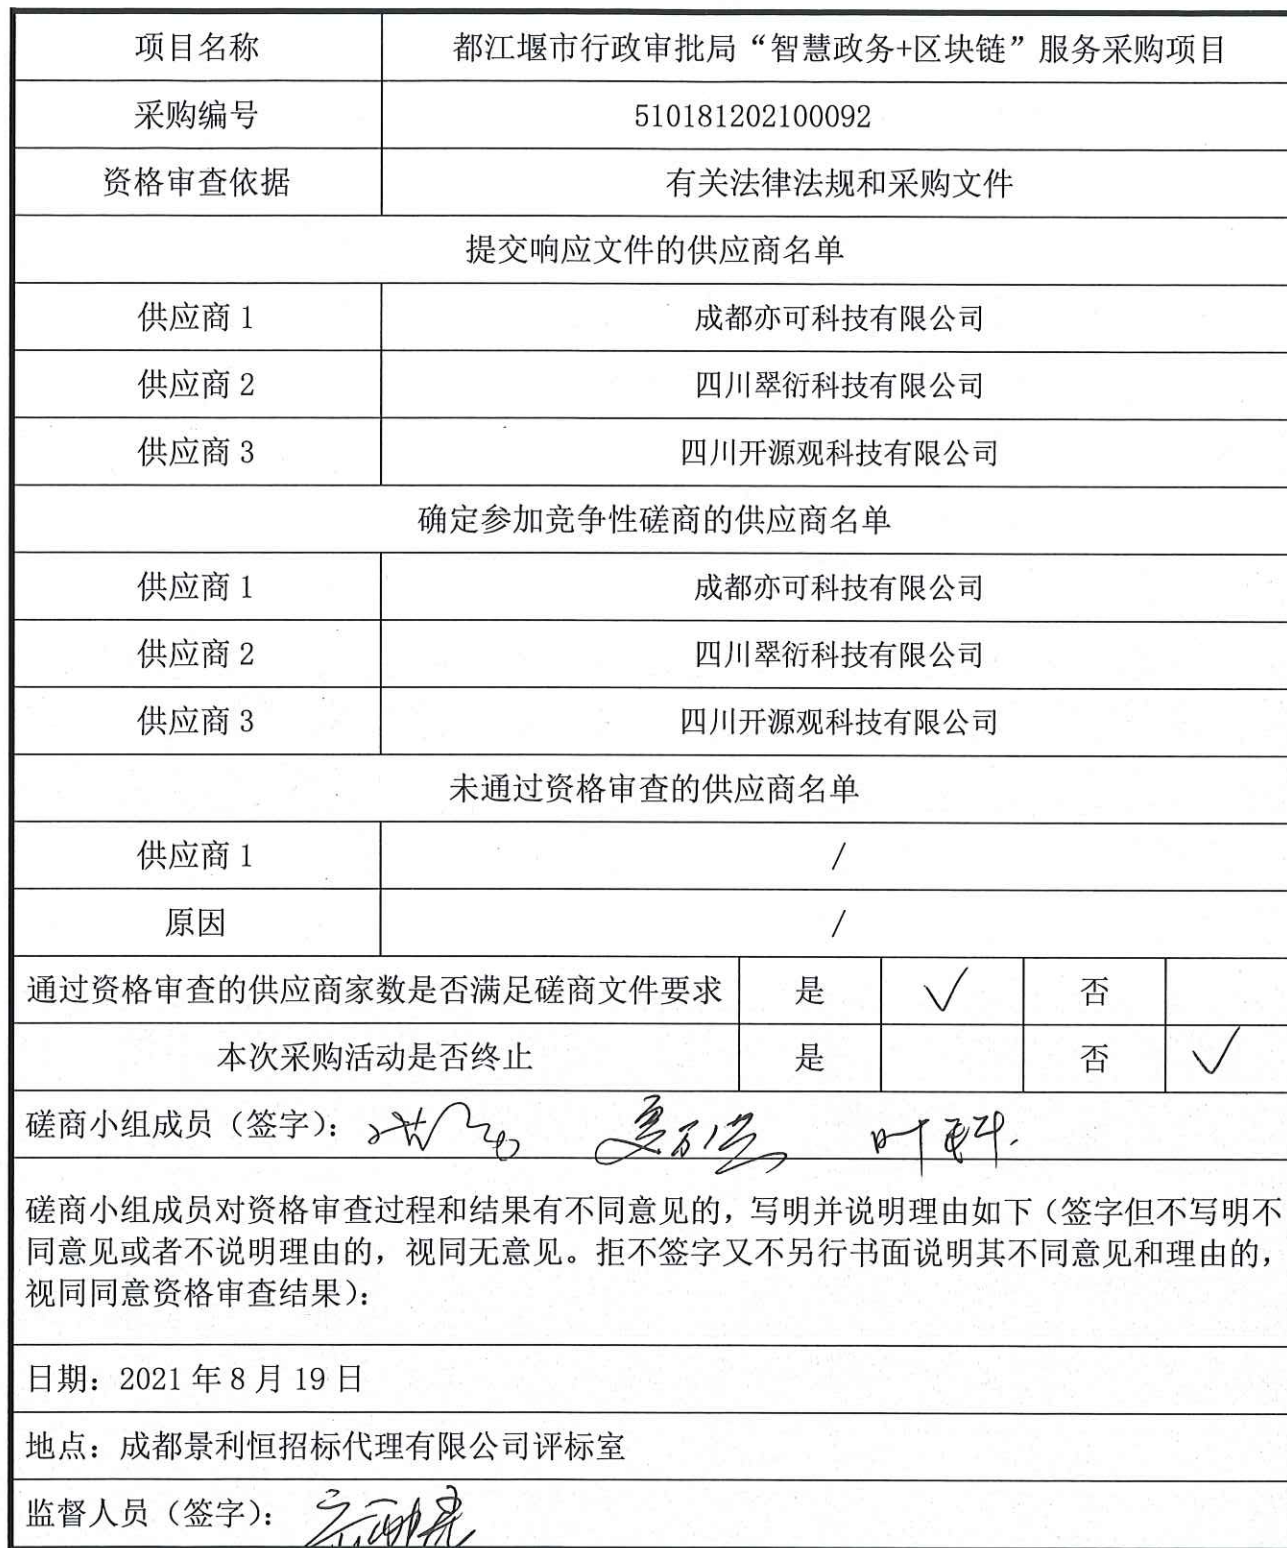 项目名称 都江堰市行政审批局“智慧政务+区块链”服务采购项目
采购编号 510181202100092
资格审查依据 有关法律法规和采购文件
提交响应文件的供应商名单
供应商 1 成都亦可科技有限公司
供应商 2 四川翠衍科技有限公司
供应商 3 四川开源观科技有限公司
确定参加竞争性磋商的供应商名单
供应商 1 成都亦可科技有限公司
供应商 2 四川翠衍科技有限公司
供应商 3 四川开源观科技有限公司
未通过资格审查的供应商名单
供应商 1 /
原因 /
通过资格审查的供应商家数是否满足磋商文件要求 是 √ 否
本次采购活动是否终止 是 否 √
磋商小组成员（签字）：
磋商小组成员对资格审查过程和结果有不同意见的，写明并说明理由如下（签字但不写明不
同意见或者不说明理由的，视同无意见。拒不签字又不另行书面说明其不同意见和理由的，
视同同意资格审查结果）：
日期：2021 年 8 月 19 日
地点：成都景利恒招标代理有限公司评标室
监督人员（签字）：